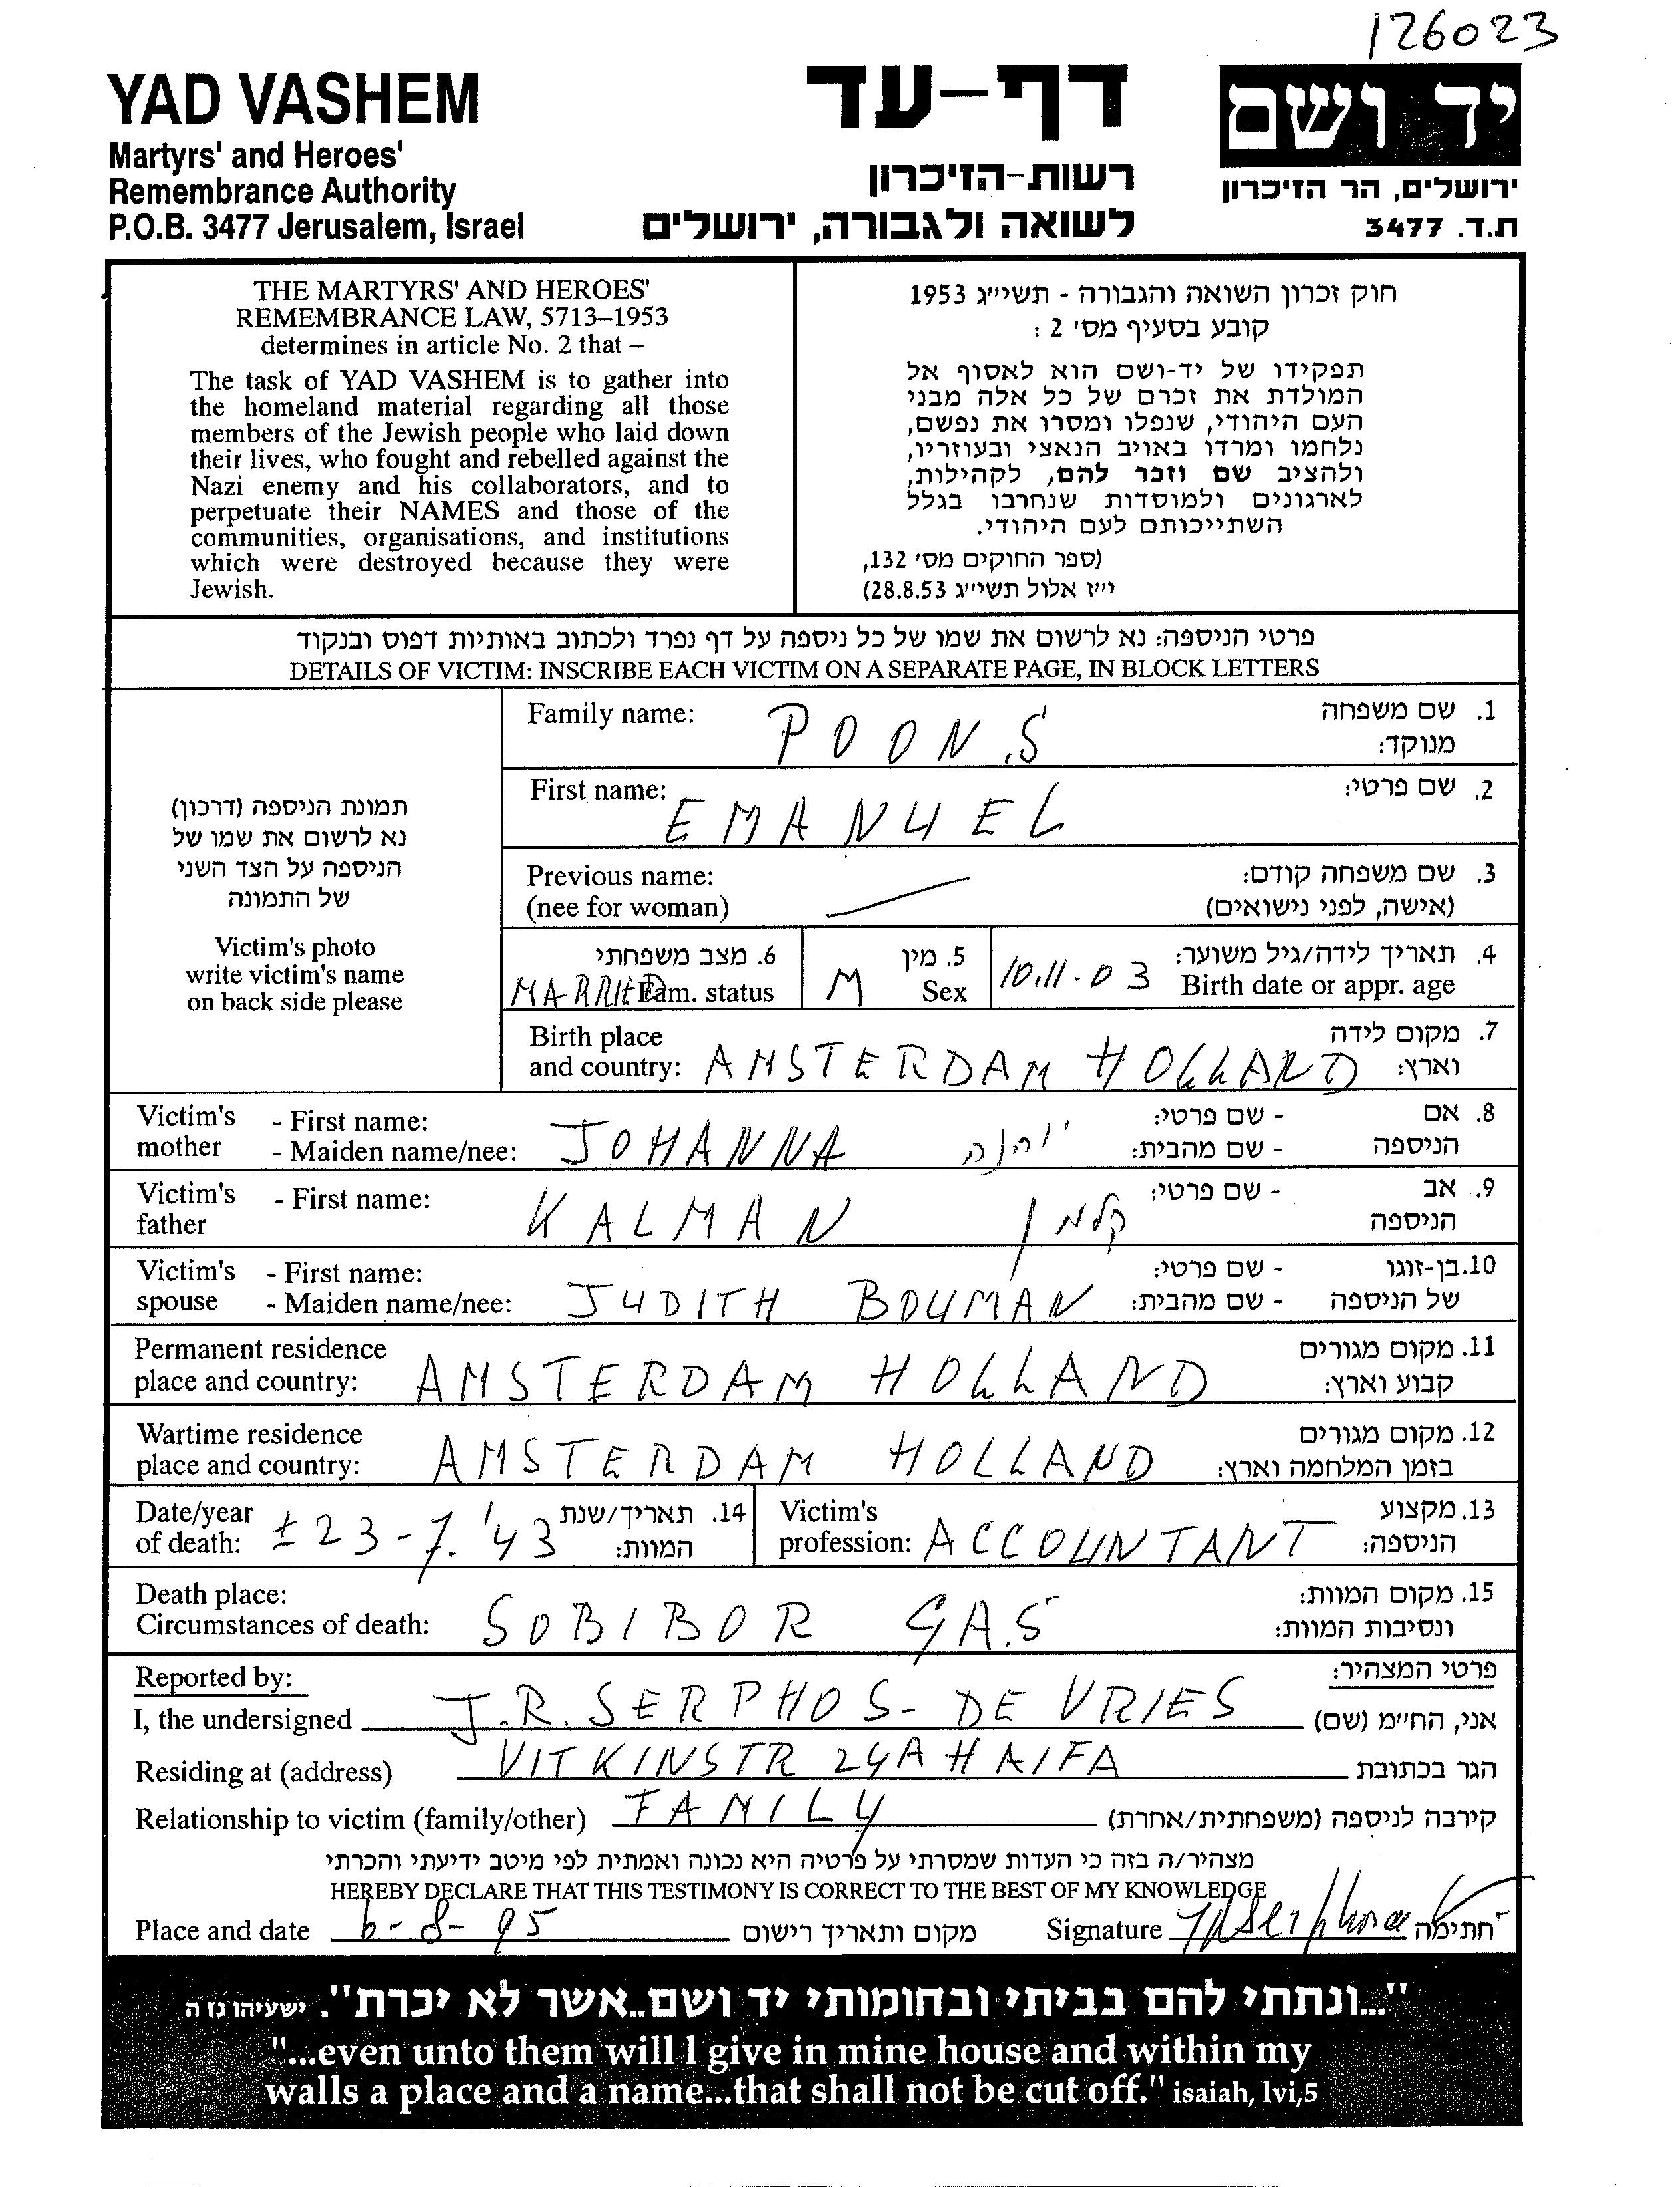 126023
YAD VASHEM
Martyrs' and Heroes'
Remembrance Authority
P.O.B. 3477 Jerusalem, Israel
דף-עד
רשות-הזיכרון
לשואה ולגבורה, ירושלים
יד ושם
ירושלים, הר הזיכרון
ת.ד. 3477
THE MARTYRS' AND HEROES'
REMEMBRANCE LAW, 5713–1953
determines in article No. 2 that –
The task of YAD VASHEM is to gather into
the homeland material regarding all those
members of the Jewish people who laid down
their lives, who fought and rebelled against the
Nazi enemy and his collaborators, and to
perpetuate their NAMES and those of the
communities, organisations, and institutions
which were destroyed because they were
Jewish.
חוק זכרון השואה והגבורה - תשי״ג 1953
קובע בסעיף מס׳ 2 :
תפקידו של יד-ושם הוא לאסוף אל
המולדת את זכרם של כל אלה מבני
העם היהודי, שנפלו ומסרו את נפשם,
נלחמו ומרדו באויב הנאצי ובעוזריו,
ולהציב שם וזכר להם, לקהילות,
לארגונים ולמוסדות שנחרבו בגלל
השתייכותם לעם היהודי.
(ספר החוקים מס׳ 132,
י״ז אלול תשי״ג 28.8.53)
פרטי הניספה: נא לרשום את שמו של כל ניספה על דף נפרד ולכתוב באותיות דפוס ובנקוד
DETAILS OF VICTIM: INSCRIBE EACH VICTIM ON A SEPARATE PAGE, IN BLOCK LETTERS
תמונת הניספה (דרכון)
נא לרשום את שמו של
הניספה על הצד השני
של התמונה
Victim's photo
write victim's name
on back side please
Family name: POONS 1. שם משפחה
מנוקד:
First name: EMANUEL 2. שם פרטי:
Previous name: 3. שם משפחה קודם:
(nee for woman) (אישה, לפני נישואים)
6. מצב משפחתי 5. מין 4. תאריך לידה/גיל משוער:
MARRIED Fam. status M Sex 10.11.03 Birth date or appr. age
Birth place 7. מקום לידה
and country: AMSTERDAM HOLLAND וארץ:
Victim's - First name: - שם פרטי: 8. אם
mother - Maiden name/nee: JOHANNA יוהנה - שם מהבית: הניספה
Victim's - First name: - שם פרטי: 9. אב
father KALMAN קלמן הניספה
Victim's - First name: - שם פרטי: 10. בן-זוגו
spouse - Maiden name/nee: JUDITH BOUMAN - שם מהבית: של הניספה
Permanent residence 11. מקום מגורים
place and country: AMSTERDAM HOLLAND קבוע וארץ:
Wartime residence 12. מקום מגורים
place and country: AMSTERDAM HOLLAND בזמן המלחמה וארץ:
Date/year 14. תאריך/שנת Victim's 13. מקצוע
of death: ± 23-7.'43 המוות: profession: ACCOUNTANT הניספה:
Death place: 15. מקום המוות:
Circumstances of death: SOBIBOR GAS ונסיבות המוות:
Reported by: פרטי המצהיר:
I, the undersigned J.R. SERPHOS- DE VRIES אני, החי״מ (שם)
Residing at (address) VITKINSTR 24A HAIFA הגר בכתובת
Relationship to victim (family/other) FAMILY קירבה לניספה (משפחתית/אחרת)
מצהיר/ה בזה כי העדות שמסרתי על פרטיה היא נכונה ואמתית לפי מיטב ידיעתי והכרתי
HEREBY DECLARE THAT THIS TESTIMONY IS CORRECT TO THE BEST OF MY KNOWLEDGE
Place and date 6-8-95 מקום ותאריך רישום Signature JRSerphos חתימה
"...ונתתי להם בביתי ובחומותי יד ושם..אשר לא יכרת". ישעיהו נז ה
"...even unto them will I give in mine house and within my
walls a place and a name...that shall not be cut off." isaiah, lvi,5